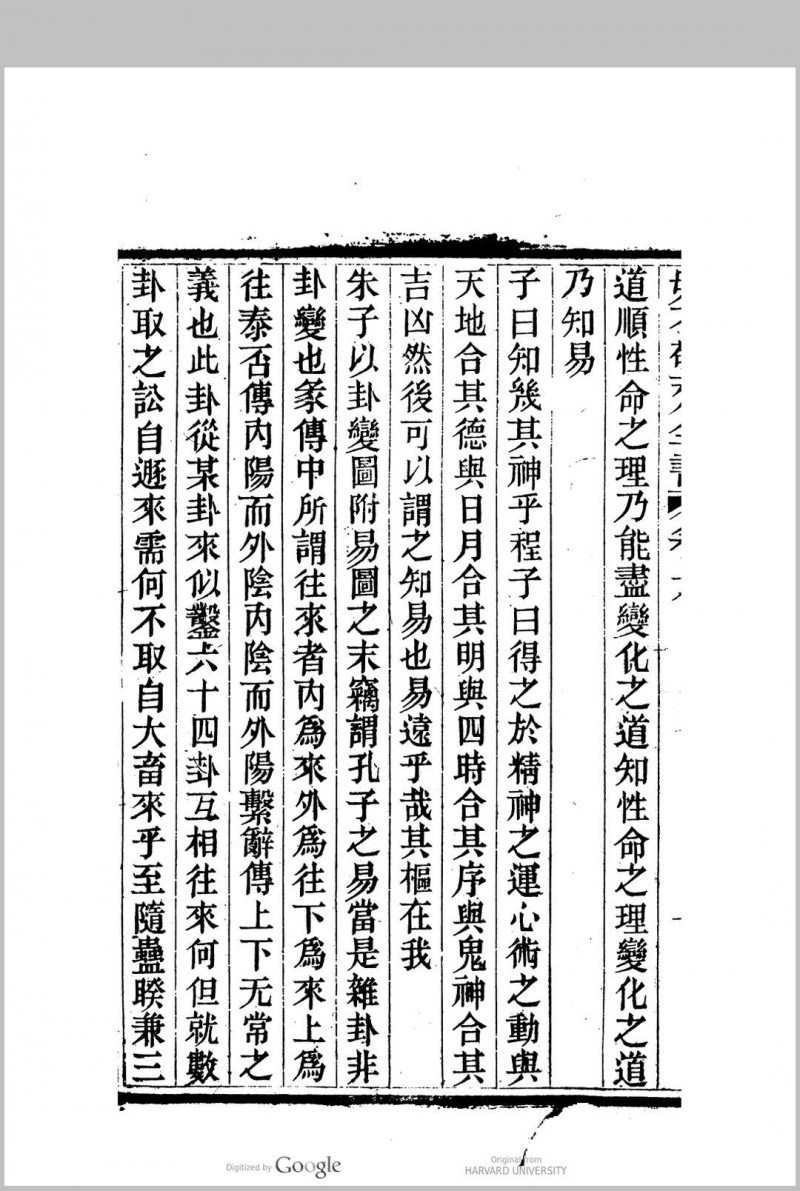 道順性命之理乃能盡變化之道知性命之理變化之道
乃知易
子曰知幾其神乎程子曰得之於精神之運心術之動與
天地合其德與日月合其明與四時合其序與鬼神合其
吉凶然後可以謂之知易也易遠乎哉其樞在我
朱子以卦變圖附易圖之末竊謂孔子之易當是雜卦非
卦變也彖傳中所謂往來者內為來外為往下為來上為
往泰否傳內陽而外陰內陰而外陽繫辭傳上下无常之
義也此卦從某卦來似鑿六十四卦互相往來何但就數
卦取之訟自遯來需何不取自大畜來乎至隨蠱睽兼三
Digitized by Google
Original from
HARVARD UNIVERSITY